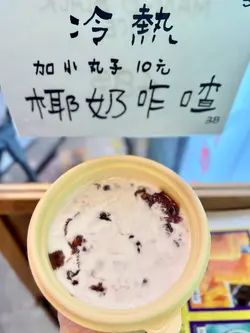 冷熱
加小丸子10元
椰奶咋喳
38